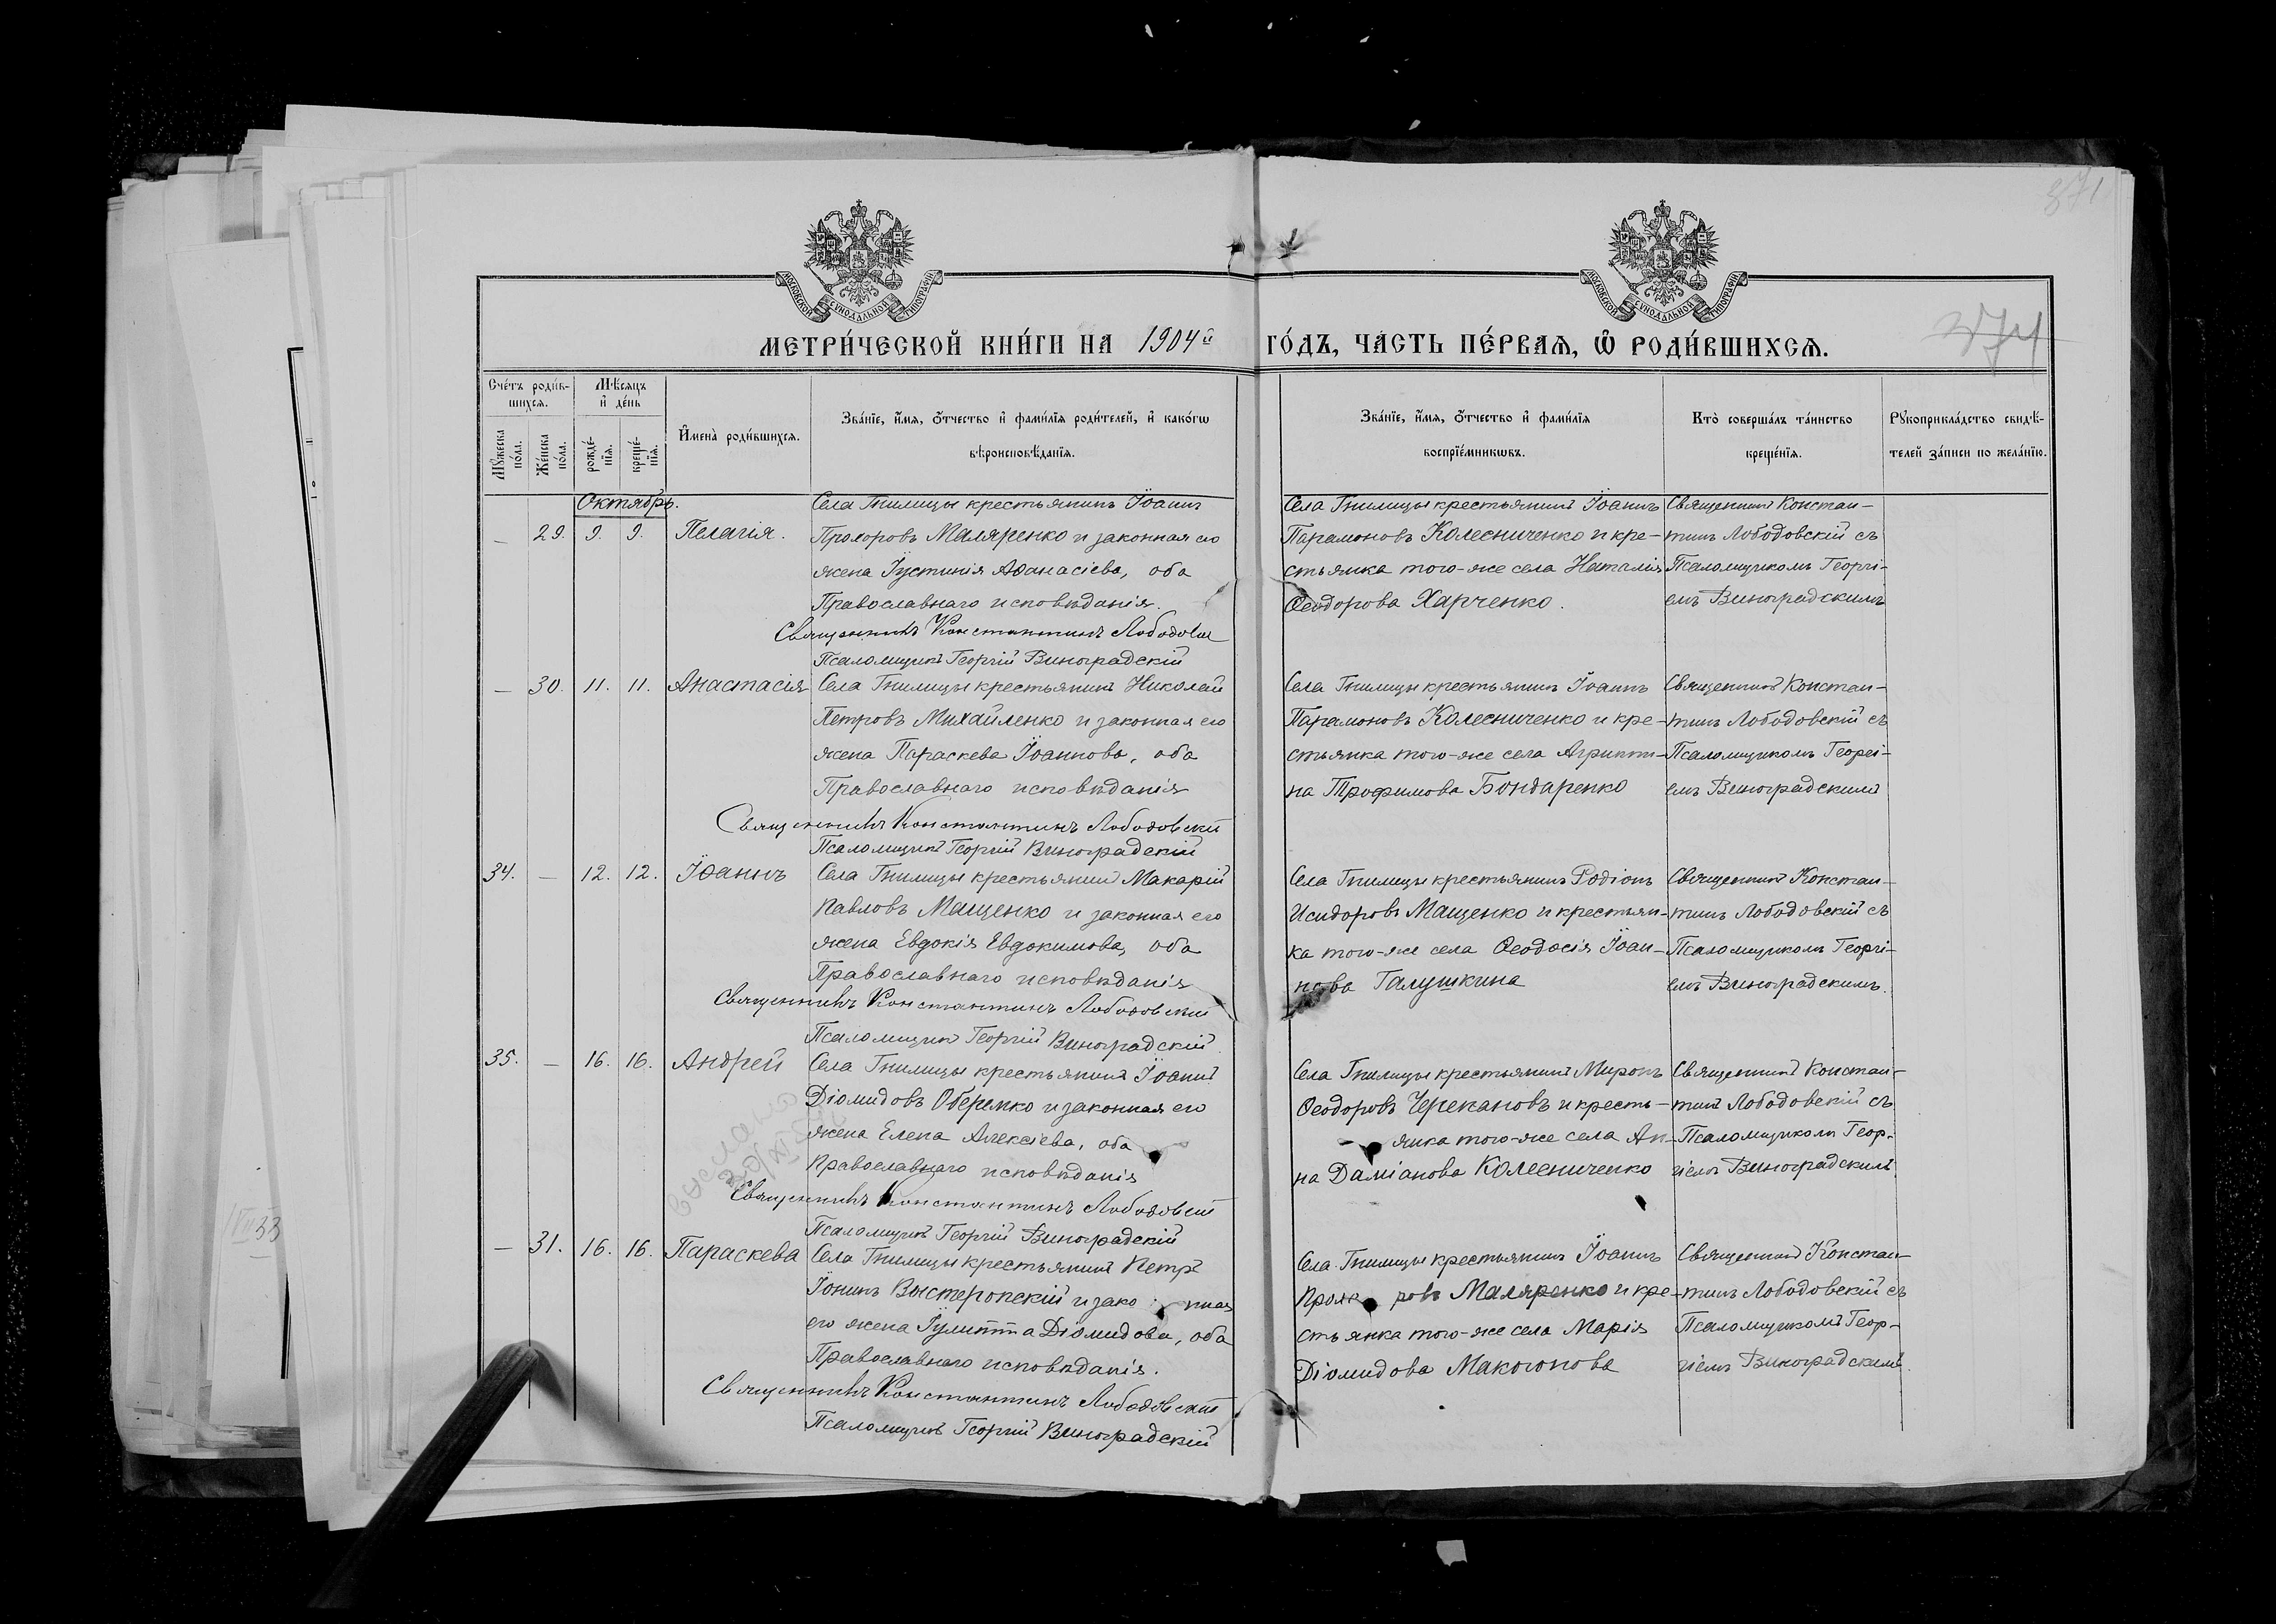 371
МОСКОВСКОЙ СѴНОДАЛЬНОЙ ТИПОГРАФІИ
МОСКОВСКОЙ СѴНОДАЛЬНОЙ ТИПОГРАФІИ
МЕТРИ́ЧЕСКОЙ КНИ́ГИ НА 1904й ГО́ДЪ, ЧА́СТЬ ПЕ́РВАЯ, Ѡ РОДИ́ВШИХСЯ.
374
Сче́тъ роди́в-
шихся.
Мꙋ́жеска по́ла.
Же́нска по́ла.
Мѣ́сяцъ
и҆ де́нь
рожде́-
нїя.
креще́-
нїя.
И҆мена̀ роди́вшихся.
Зва́нїе, и҆́мя, ѻ҆́тчество и҆ фами́лїя роди́телей, и҆ како́гѡ
вѣроисповѣ́данїя.
Зва́нїе, и҆́мя, ѻ҆́тчество и҆ фами́лїя
воспрїе́мникѡвъ.
Кто̀ соверша́лъ та́инство
креще́нїя.
Рꙋкоприкла́дство свидѣ́-
телей за́писи по жела́нїю.
Октябрь.
— 29. 9. 9. Пелагія.
Села Гнилицы крестьянинъ Іоаннъ
Прохоровъ Маляренко и законная его
жена Іустинія Аѳанасіева, оба
Православнаго исповѣданія.
Священникъ Константинъ Лободовск
Псаломщикъ Георгій Виноградскій
Села Гнилицы крестьянинъ Іоаннъ
Парамоновъ Колесниченко и кре-
стьянка того-же села Наталія
Ѳеодорова Харченко.
Священникъ Констан-
тинъ Лободовскій съ
Псаломщикомъ Георгі-
емъ Виноградскимъ
— 30. 11. 11. Анастасія
Села Гнилицы крестьянинъ Николай
Петровъ Михайленко и законная его
жена Параскева Іоаннова, оба
Православнаго исповѣданія
Священникъ Константинъ Лободовскій
Псаломщикъ Георгій Виноградскій
Села Гнилицы крестьянинъ Іоаннъ
Парамоновъ Колесниченко и кре-
стьянка того-же села Агриппи-
на Трофимова Бондаренко
Священникъ Констан-
тинъ Лободовскій съ
Псаломщикомъ Георгі-
емъ Виноградскимъ
34. — 12. 12. Іоаннъ
Села Гнилицы крестьянинъ Макарій
Павловъ Мащенко и законная его
жена Евдокія Евдокимова, оба
Православнаго исповѣданія
Священникъ Константинъ Лободовскій
Псаломщикъ Георгій Виноградскій
Села Гнилицы крестьянинъ Родіонъ
Исидоровъ Мащенко и крестьян-
ка того-же села Ѳеодосія Іоан-
нова Галушкина
Священникъ Констан-
тинъ Лободовскій съ
Псаломщикомъ Георгі-
емъ Виноградскимъ.
35. — 16. 16. Андрей
Села Гнилицы крестьянинъ Іоаннъ
Діомидовъ Оберемко и законная его
жена Елена Алексіева, оба
Православнаго исповѣданія
Священникъ Константинъ Лободовскій
Псаломщикъ Георгій Виноградскій
Села Гнилицы крестьянинъ Миронъ
Ѳеодоровъ Черекановъ и кресть-
янка того-же села Ан-
на Даміанова Колесниченко
Священникъ Констан-
тинъ Лободовскій съ
Псаломщикомъ Геор-
гіемъ Виноградскимъ
— 31. 16. 16. Параскева
Села Гнилицы крестьянинъ Петръ
Іонинъ Выстеропскій и законная
его жена Іулитта Діомидова, оба
Православнаго исповѣданія.
Священникъ Константинъ Лободовскій
Псаломщикъ Георгій Виноградскій
Села Гнилицы крестьянинъ Іоаннъ
Прохоровъ Маляренко и кре-
стьянка того-же села Марія
Діомидова Макогонова
Священникъ Констан-
тинъ Лободовскій съ
Псаломщикомъ Геор-
гіемъ Виноградскимъ.